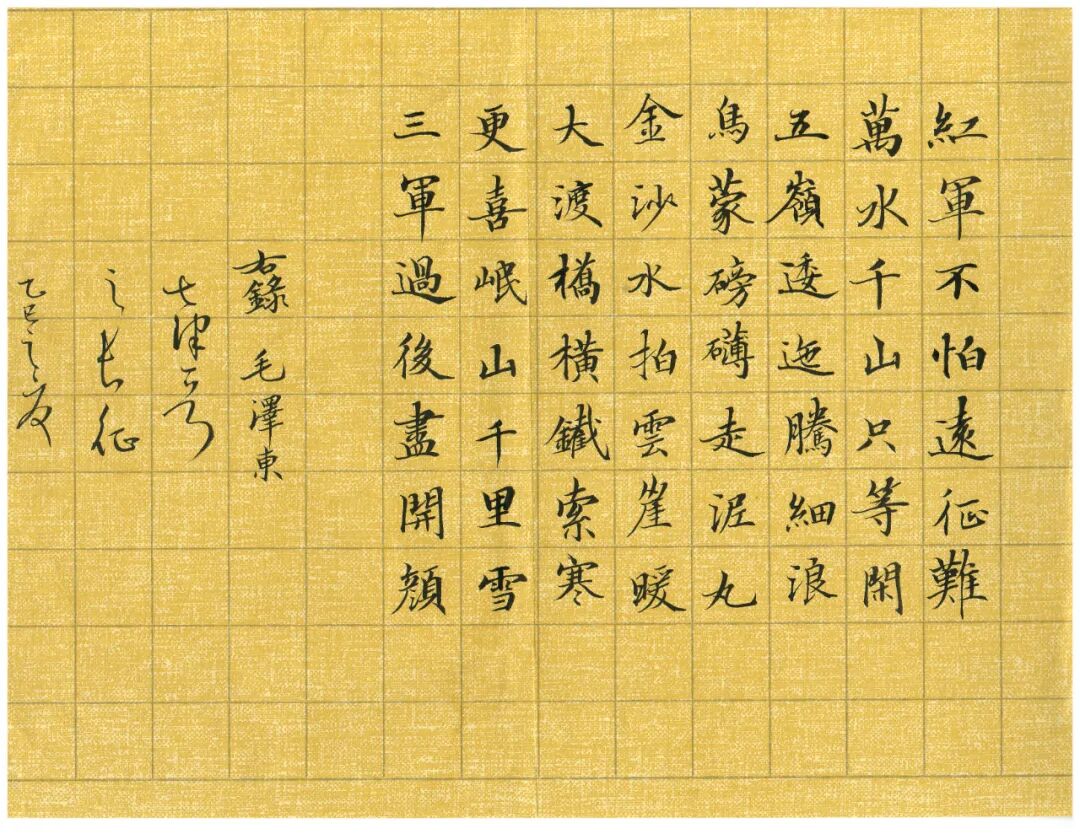 紅軍不怕遠征難
萬水千山只等閑
五嶺逶迤騰細浪
烏蒙磅礴走泥丸
金沙水拍雲崖暖
大渡橋橫鐵索寒
更喜岷山千里雪
三軍過後盡開顏
右錄 毛澤東
七律一首
之長征
乙巳之夏